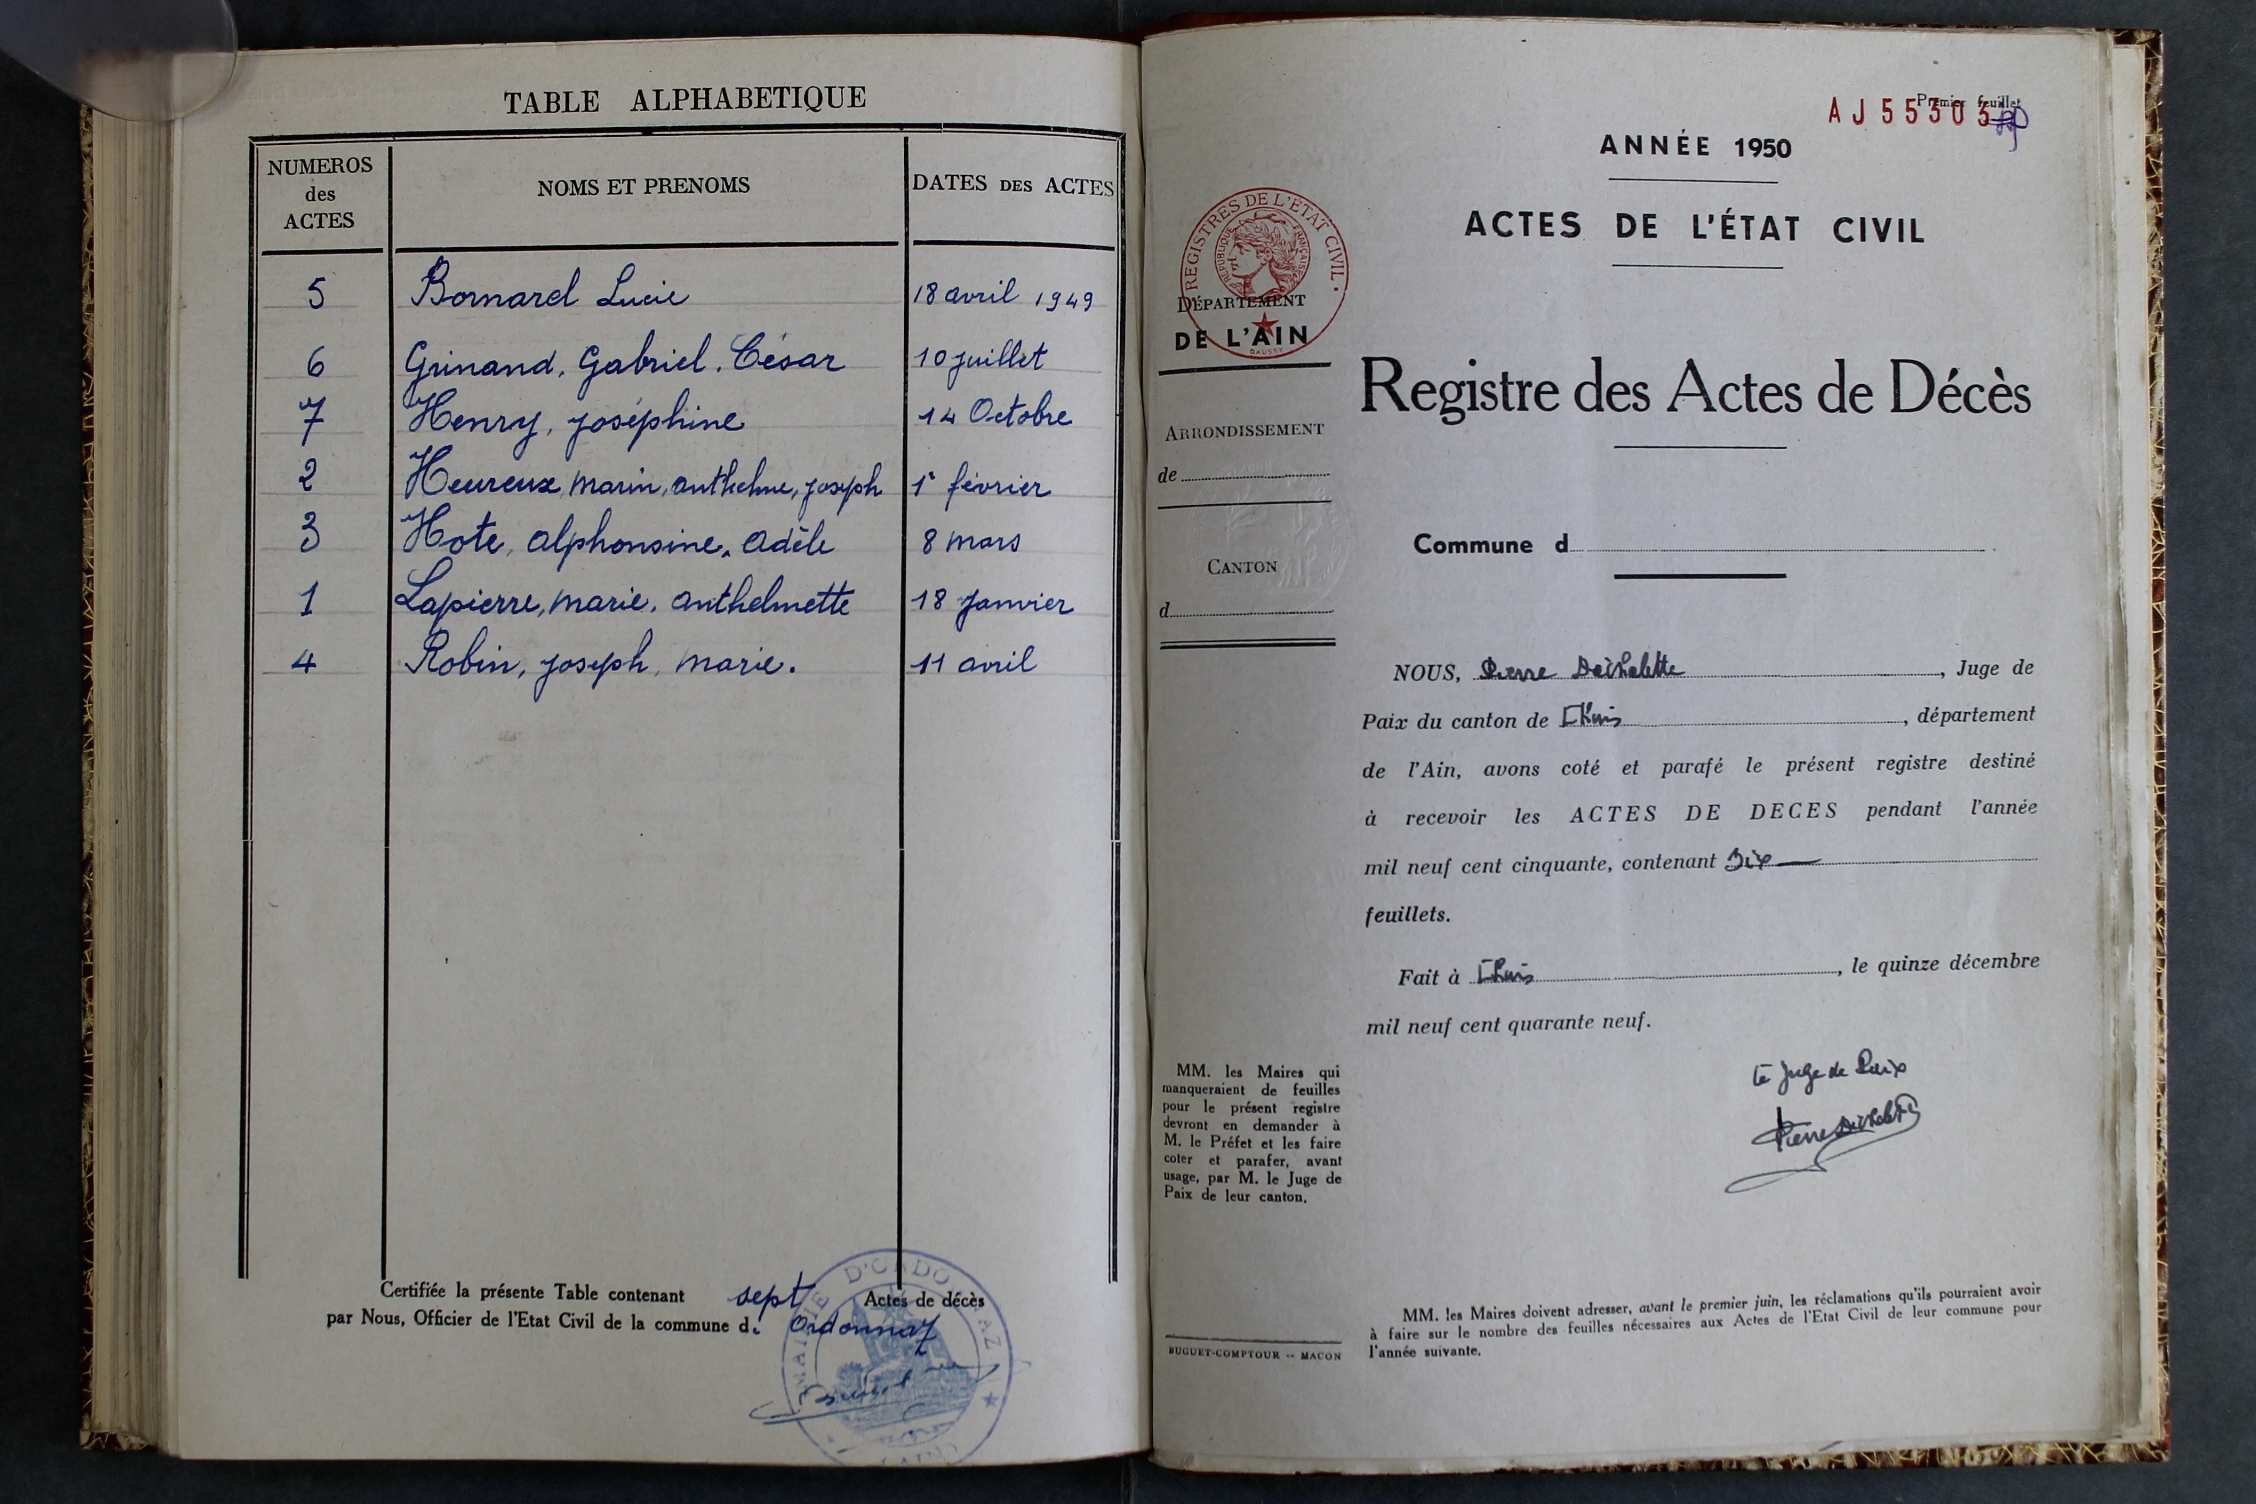 TABLE ALPHABETIQUE
NUMEROS des ACTES
NOMS ET PRENOMS
DATES DES ACTES
5 Bornarel Lucie 18 avril 1949
6 Grinand, Gabriel, César 10 juillet
7 Henry, joséphine 14 Octobre
2 Heureux, marin, anthelme, joseph 1r février
3 Hote, alphonsine, adèle 8 mars
1 Lapierre, marie, anthelmette 18 janvier
4 Robin, joseph, marie. 11 avril
Certifiée la présente Table contenant sept Actes de décès
par Nous, Officier de l'Etat Civil de la commune d. Ordonnaz
MAIRIE D'ORDONNAZ
Premier feuillet
AJ55303
ANNÉE 1950
ACTES DE L'ÉTAT CIVIL
REGISTRES DE L'ETAT CIVIL
REPUBLIQUE FRANÇAISE
DAUSSY
DÉPARTEMENT
DE L'AIN
Registre des Actes de Décès
ARRONDISSEMENT
de
Commune d
CANTON
d
NOUS, Pierre Dechelette, Juge de
Paix du canton de Lhuis, département
de l'Ain, avons coté et parafé le présent registre destiné
à recevoir les ACTES DE DECES pendant l'année
mil neuf cent cinquante, contenant Six
feuillets.
Fait à Lhuis, le quinze décembre
mil neuf cent quarante neuf.
Le Juge de Paix
Pierre Dechelette
MM. les Maires qui
manqueraient de feuilles
pour le présent registre
devront en demander à
M. le Préfet et les faire
coter et parafer, avant
usage, par M. le Juge de
Paix de leur canton.
BUGUET-COMPTOUR -- MACON
MM. les Maires doivent adresser, avant le premier juin, les réclamations qu'ils pourraient avoir
à faire sur le nombre des feuilles nécessaires aux Actes de l'Etat Civil de leur commune pour
l'année suivante.